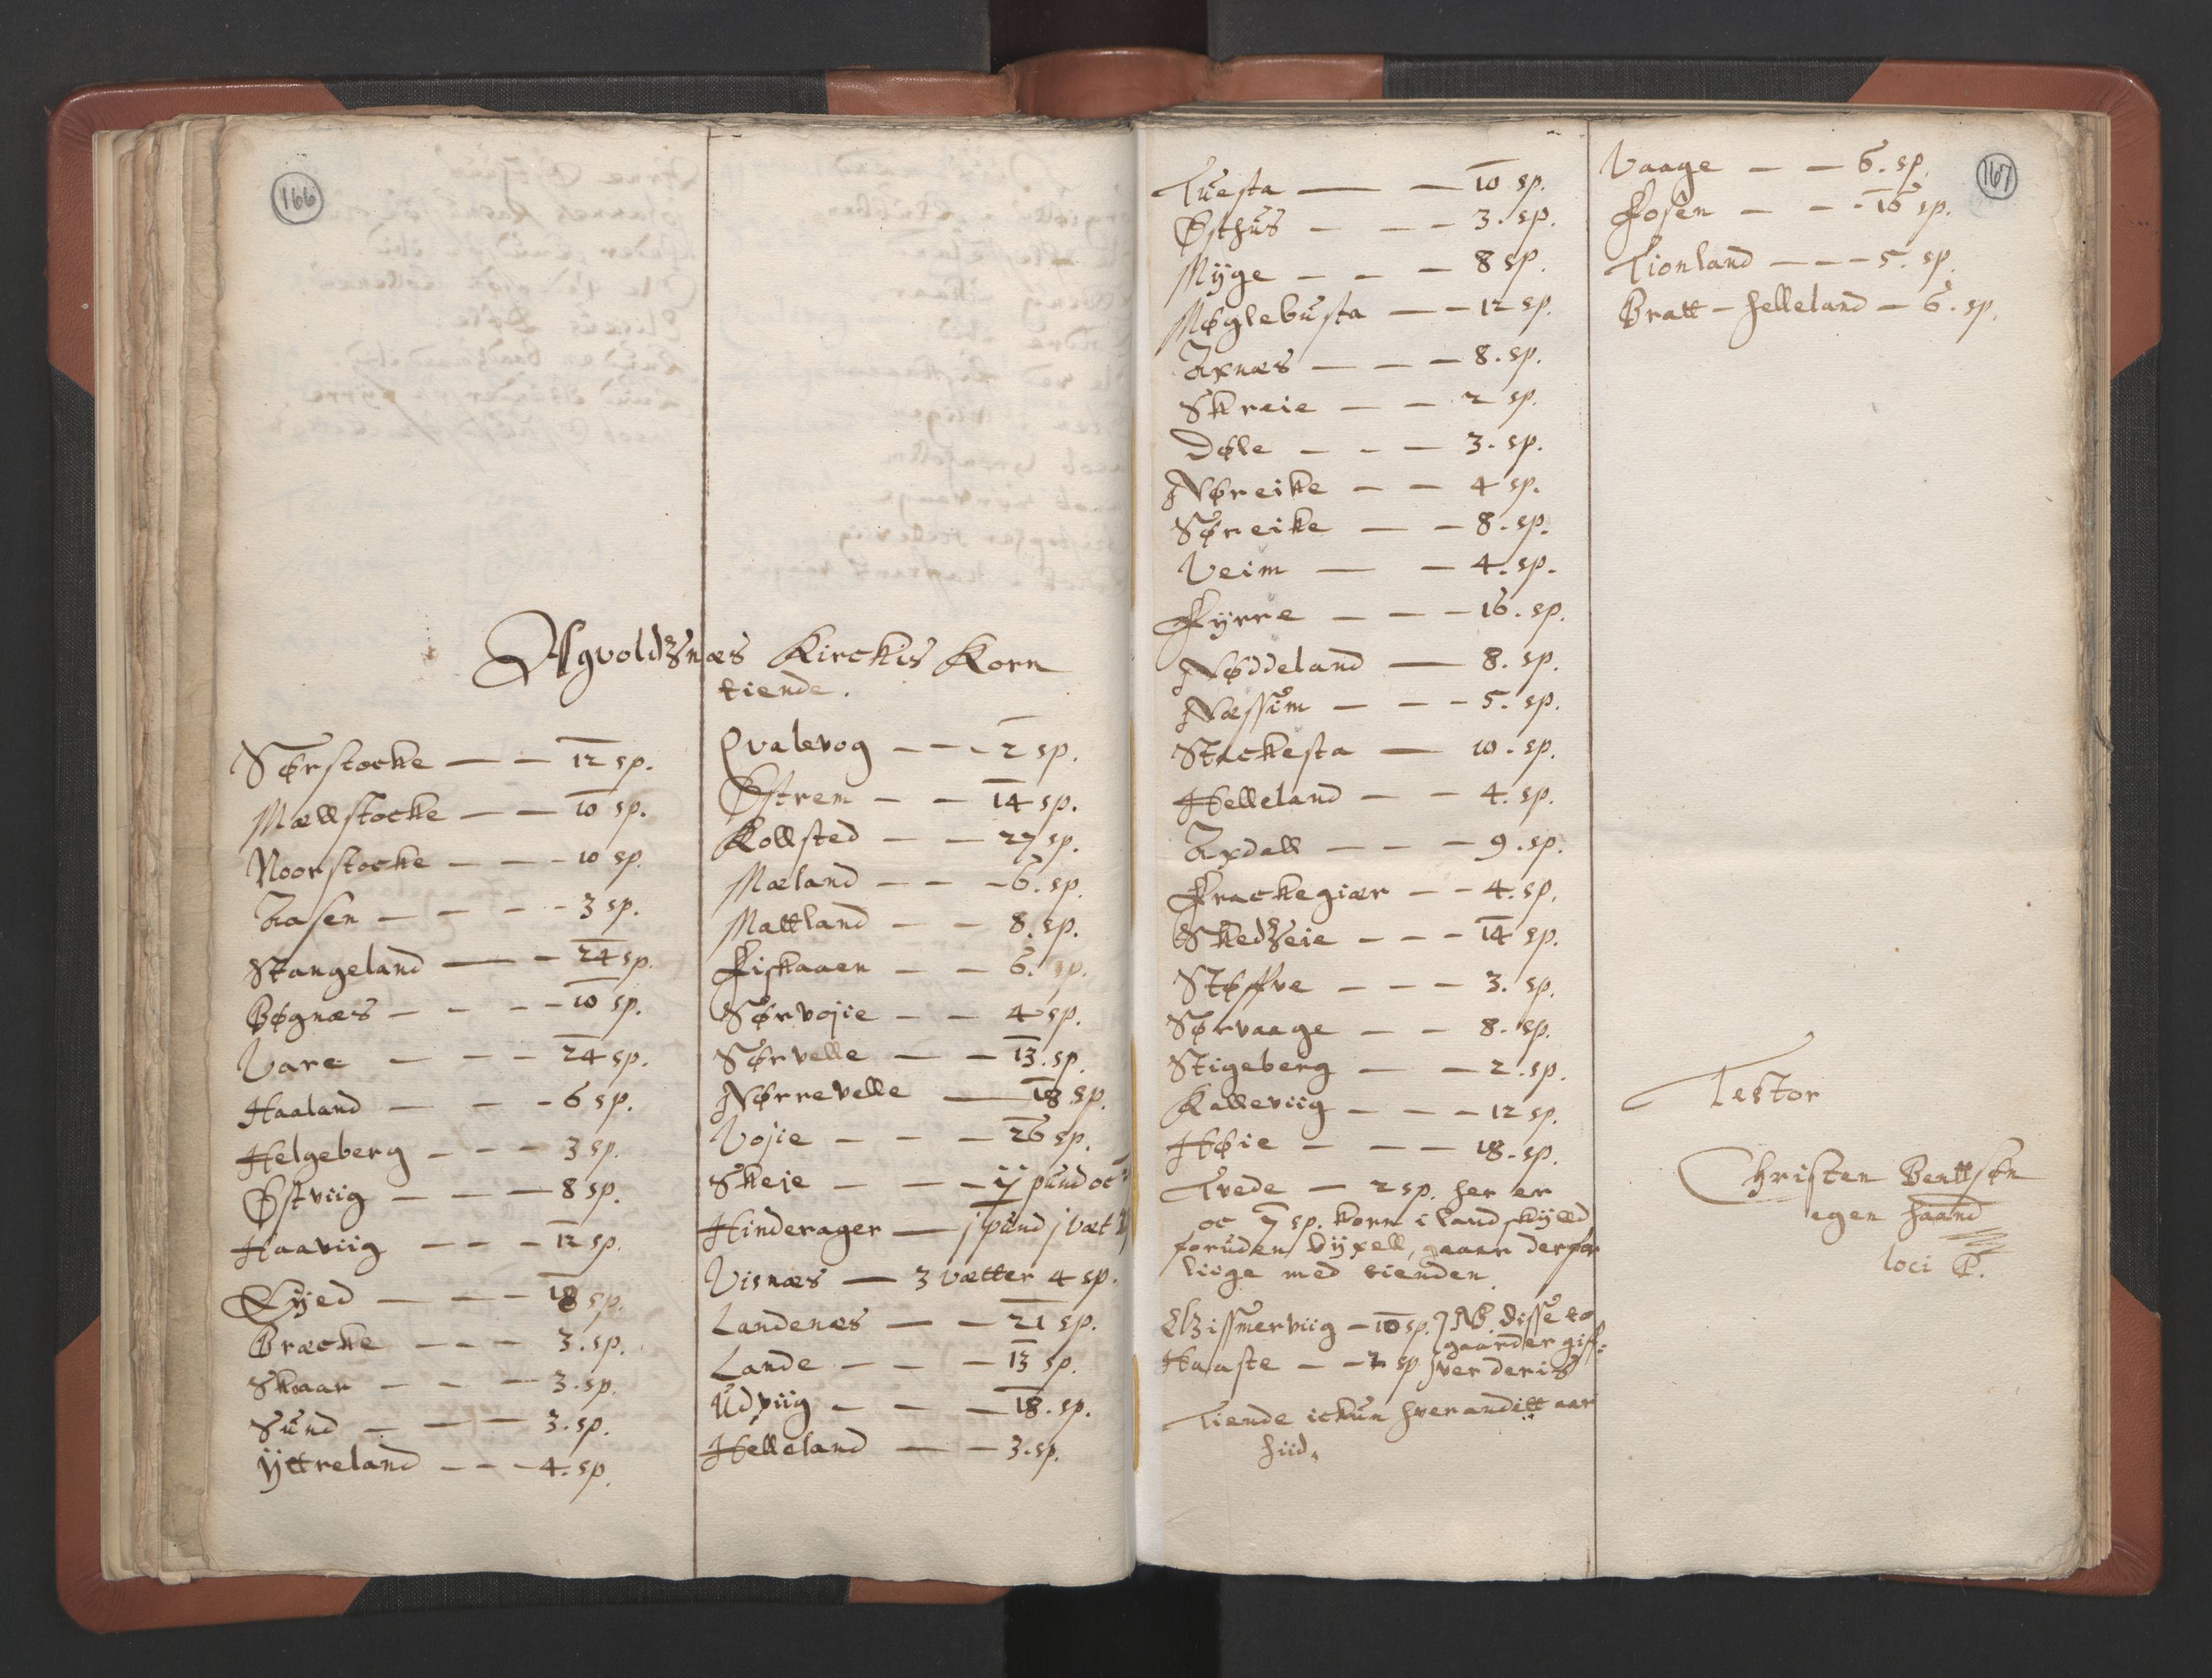 166
Agvoldznæs Kirckis Korn
tiende.
Sørstocke — — 12 sp.
Mællstocke — — 10 sp.
Noorstocke — — - 10 sp.
Aasen — — - - 3 sp.
Stangeland — - 24 sp.
Bøgnæs — - — - 10 sp.
Vare — — — 24 sp.
Haaland — - - 6 sp.
Helgeberg - — — 3 sp.
Østviig — — — 8 sp.
Haaviig — — — 12 sp.
Eijed — — — 18 sp.
Bræcke — — — 3. sp.
Skaar — — — 3. sp.
Sund — — — 3. sp.
Yttreland — — — 4. sp.
Qvalevog — — - 2 sp.
Østrem — — 14 sp.
Kollsted — — 27 sp.
Mæland — — - 6. sp.
Mattland — — 8. sp.
Fiskaaen — — 6. sp.
Sørvojie — — 4 sp.
Sørvelle — — 13. sp.
Nørrevelle — 18 sp.
Vojie — — — 26 sp.
Skeie — — - ij pund oc
Hinderager — j pund j væt
Visnæs — 3 vætter 4 sp.
Landenæs — — 21 sp.
Lande — — — 13 sp.
Udviig — — — 18. sp.
Helleland — — 3. sp.
167
Tuesta — — 10 sp.
Østhus — — — 3. sp.
Myge — — — 8 sp.
Møglebusta — — 12 sp.
Axnæs — — — 8. sp.
Skreie — — 2 sp.
Døle — — — 3. sp.
Nøreike — — 4 sp.
Søreike — — 8. sp.
Veim — — 4. sp.
Fyrre — — — 16. sp.
Nøddeland — 8. sp.
Næssim — — - 5. sp.
Stackesta — 10. sp.
Helleland — — 4. sp.
Axdall — — — 9. sp.
Frackegiær — — 4. sp.
Skedzeie — — — 14 sp.
Støffve — — — 3. sp.
Sørvaage — — 8. sp.
Stigeberg — — 2. sp.
Kalleviig — — — 12 sp.
Høie — — — 18. sp.
Tvede — 2 sp. her er
oc 7 sp. korn i landskyld
foruden byxell, gaaer derfor
liige med tienden.
Elzissmerviig — 10 sp. } NB. disse to
Haaste — — 2 sp. } gaarder giff-
ver deris
Tiende ickun hveranditt aar
hiid.
Vaage — — 6. sp.
Fosen — — - 16 sp.
Tionland — — — 5. sp.
Bratt-helleland — 6. sp.
Testor
Christen Benttsøn
egen haand
loci P.